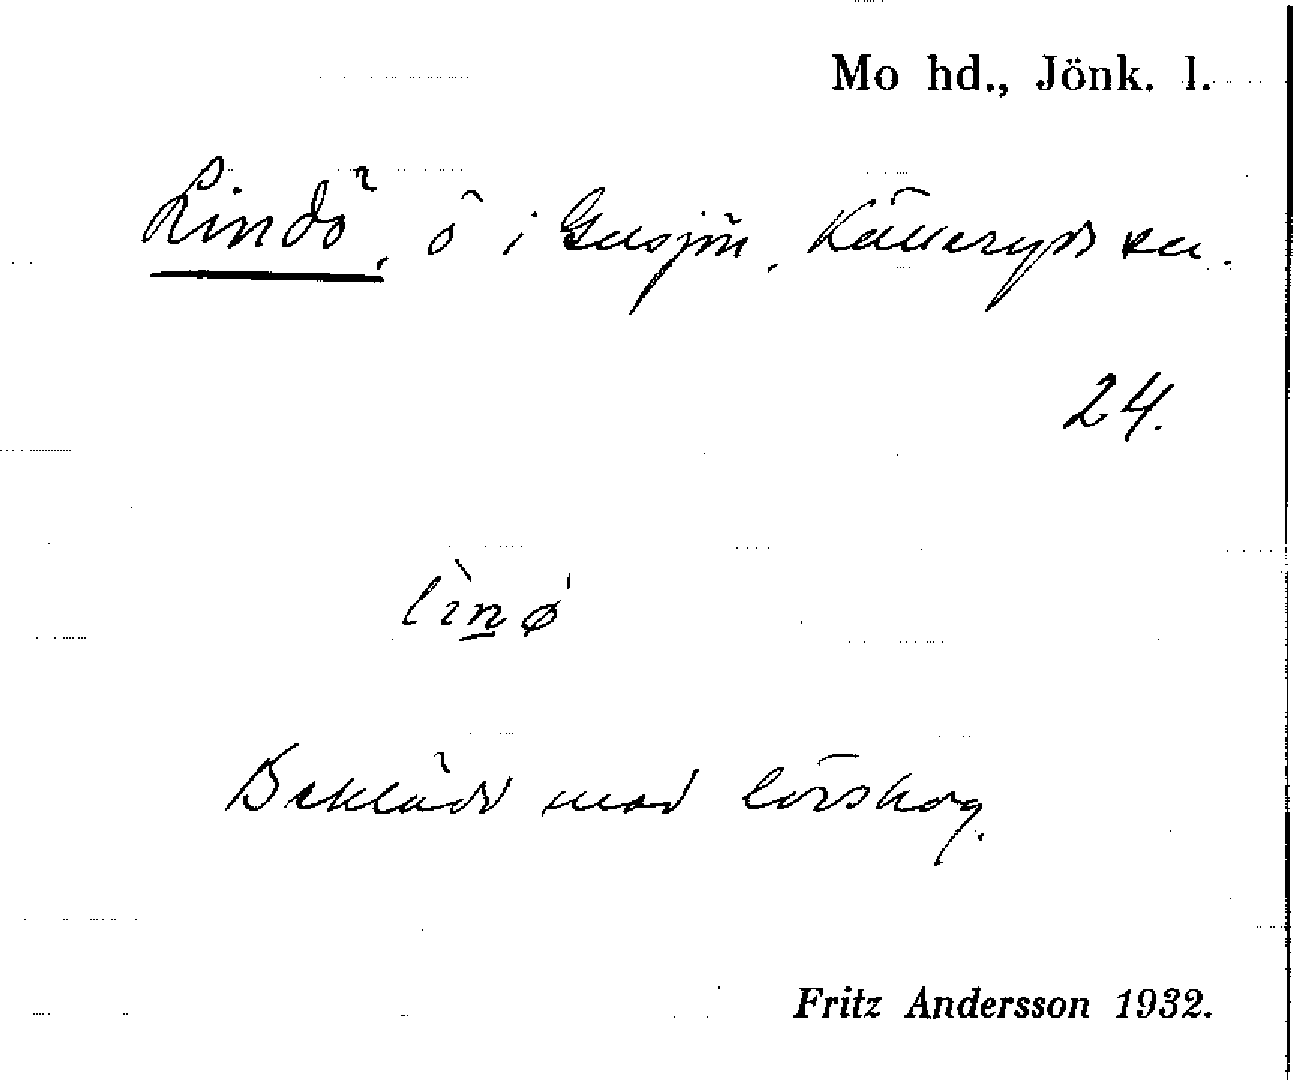 Mo hd., Jönk. l.
Lindö, ö i Gusjön, Källeryds sn.
24.
lìnø
Beklädd med lövskog.
Fritz Andersson 1932.